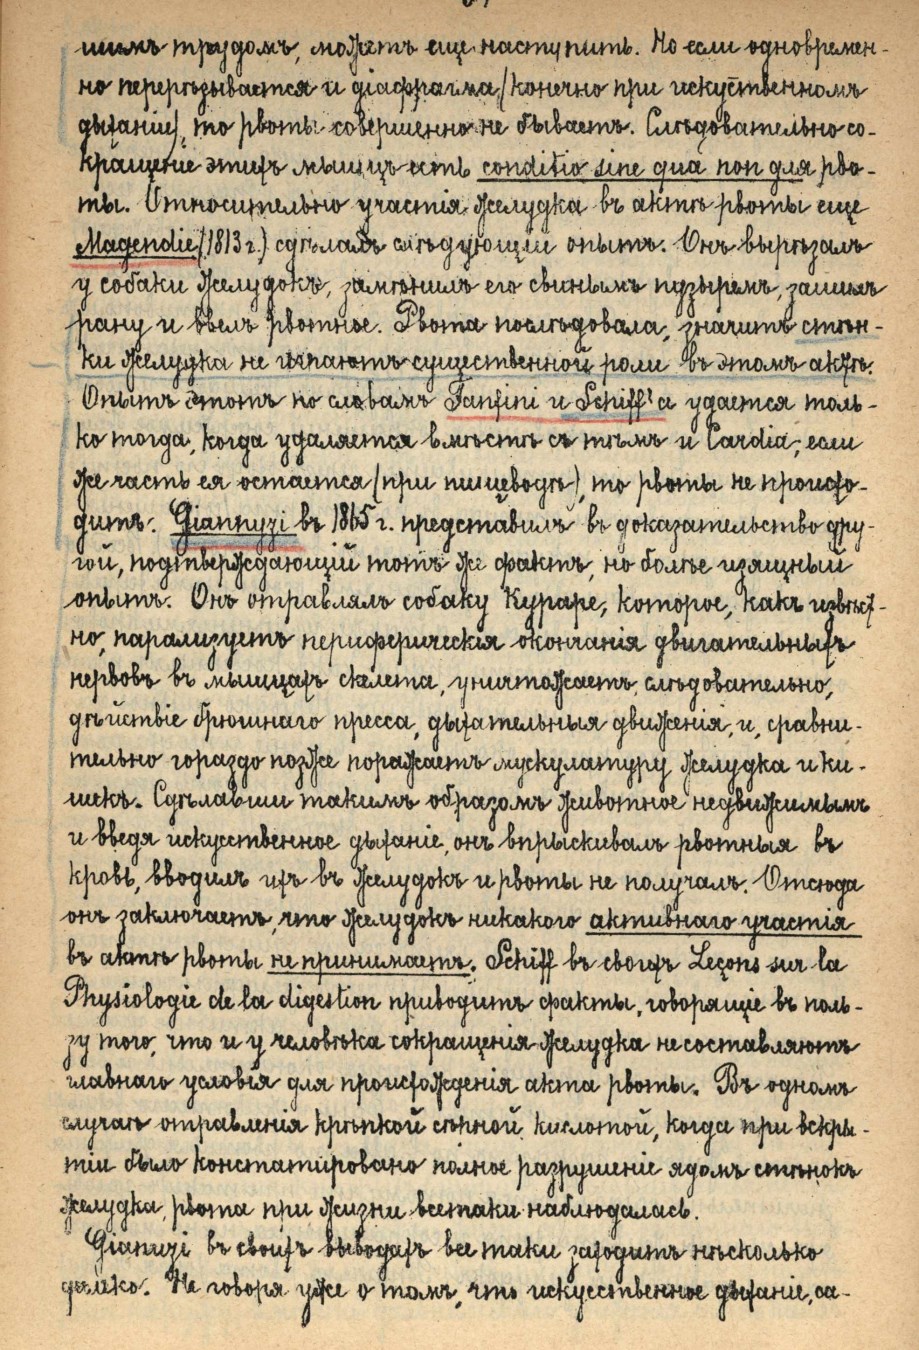 шимъ трудомъ, можетъ еще наступить. Но если одновремен-
но перерѣзывается и діафрагма (конечно при искуственномъ
дыханіи), то рвоты совершенно не бываетъ. Слѣдовательно со-
кращеніе этихъ мышцъ есть conditio sine qua non для рво-
ты. Относительно участія желудка въ актѣ рвоты еще
Magendie (1813 г.) сдѣлалъ слѣдующій опытъ. Онъ вырѣзалъ
у собаки желудокъ, замѣнилъ его свинымъ пузыремъ, зашилъ
рану и ввелъ рвотное. Рвота послѣдовала, значитъ стѣн-
ки желудка не играютъ существенной роли въ этомъ актѣ.
Опытъ этотъ по словамъ Tantini и Schiff'а удается толь-
ко тогда, когда удаляется вмѣстѣ съ тѣмъ и Cardia; если
же часть ея остается (при пищеводѣ), то рвоты не происхо-
дитъ. Giannuzi въ 1865 г. представилъ въ доказательство дру-
гой, подтверждающій тотъ же фактъ, но болѣе изящный
опытъ. Онъ отравлялъ собаку Кураре, которое, какъ извѣст-
но, парализуетъ периферическія окончанія двигательныхъ
нервовъ въ мышцахъ скелета, уничтожаетъ, слѣдовательно,
дѣйствіе брюшнаго пресса, дыхательныя движенія, и, сравни-
тельно гораздо позже поражаетъ мускулатуру желудка и ки-
шекъ. Сдѣлавши такимъ образомъ животное недвижимымъ
и введя искусственное дыханіе, онъ впрыскивалъ рвотныя въ
кровь, вводилъ ихъ въ желудокъ и рвоты не получалъ. Отсюда
онъ заключаетъ, что желудокъ никакого активнаго участія
въ актѣ рвоты не принимаетъ. Schiff въ своихъ Leçons sur la
Physiologie de la digestion приводитъ факты, говорящіе въ поль-
зу того, что и у человѣка сокращенія желудка не составляютъ
главнаго условія для происхожденія акта рвоты. Въ одномъ
случаѣ отравленія крѣпкой сѣрной кислотой, когда при вскры-
тіи было констатировано полное разрушеніе ядомъ стѣнокъ
желудка, рвота при жизни всетаки наблюдалась.
Gianuzi въ своихъ выводахъ все таки заходитъ нѣсколько
далеко. Не говоря уже о томъ, что искусственное дыханіе, са-